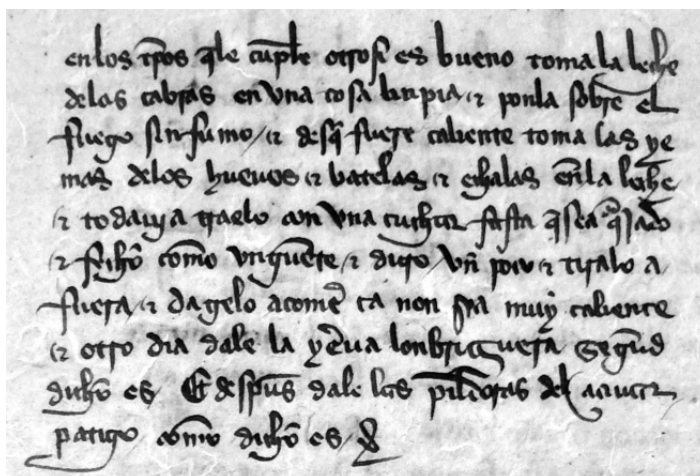 en los tpos q̄ le cuple otrosi es bueno toma la leche
de las cabras en vna cosa linpia & ponla sobre el
fuego sin fumo / & desq̄ fuere caliente toma las ye
mas delos hueuos & batelas & echalas en la leche
& todavia traelo con vna cuchar fasta q̄ sea q̄jado
& fecho como vnguēte & dixo vn poco & tiralo a
fuera & dagelo a comer ca non sea muy caliente
& otro dia dale la yerua lonbriguera segund
dicho es Et despues dale las pildoras del aciuar
patico como dicho es